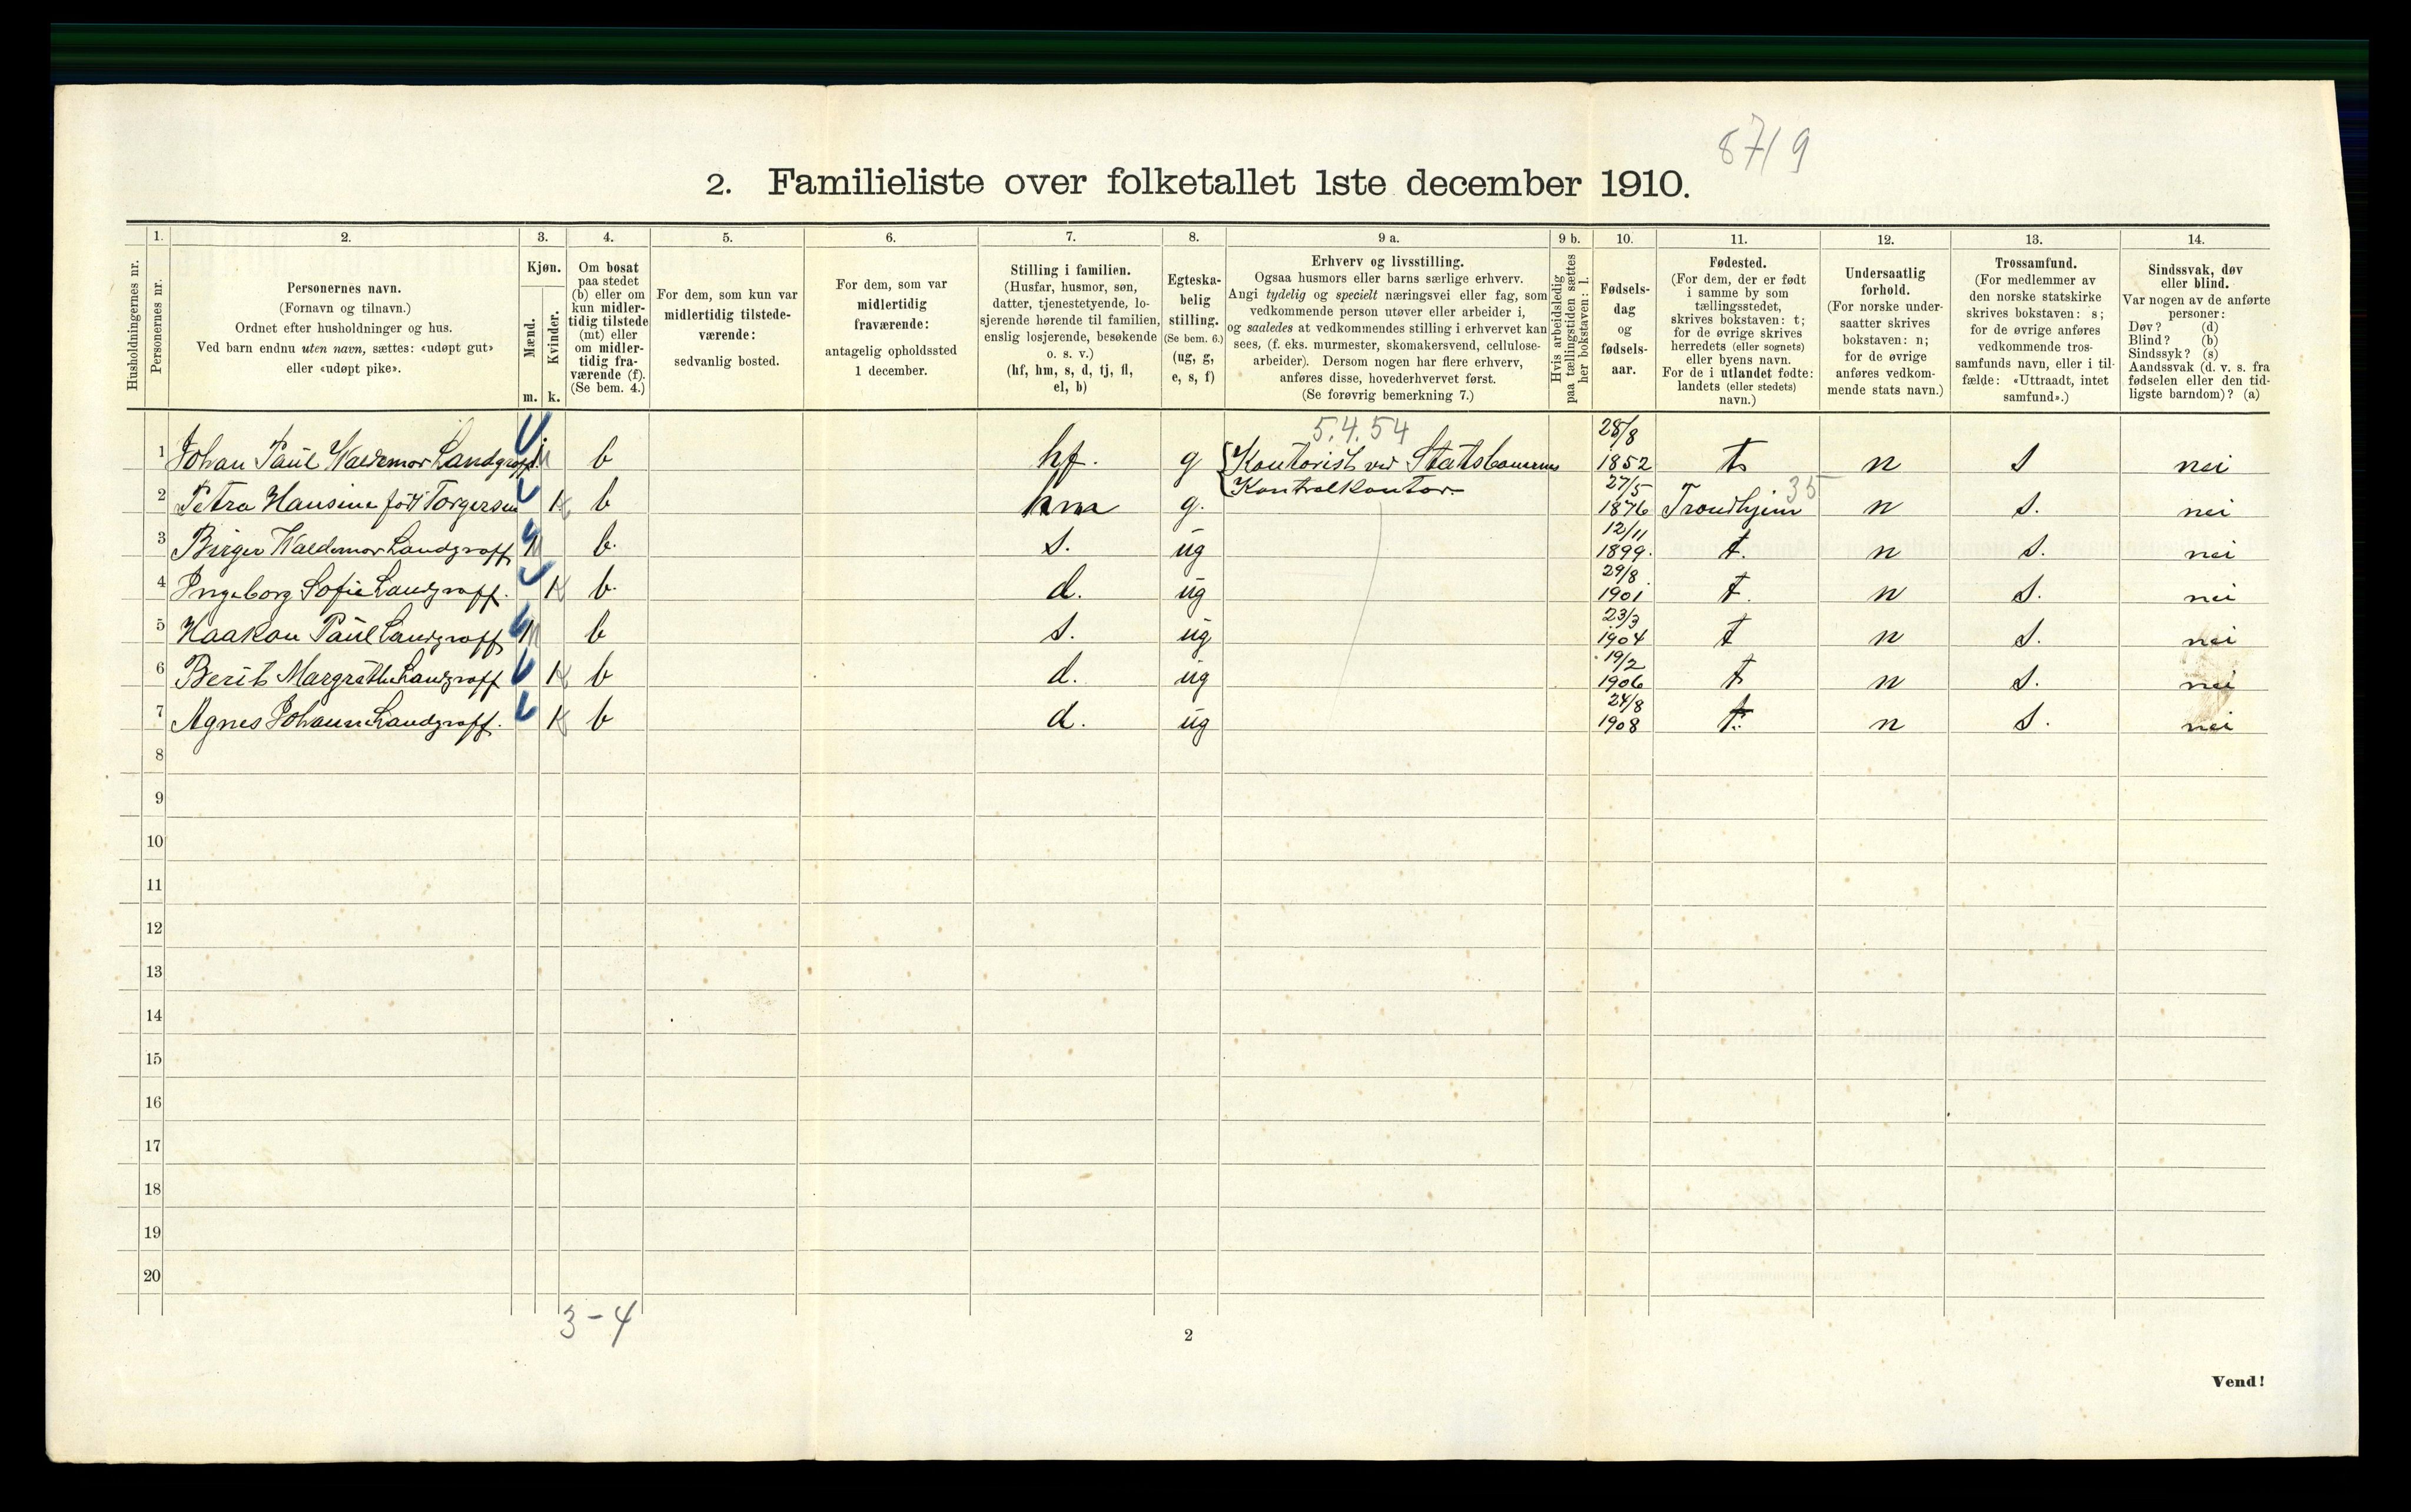 8719
2. Familieliste over folketallet 1ste december 1910.
Husholdningernes nr.
1. 2. 3. 4. 5. 6. 7. 8. 9 a. 9 b. 10. 11. 12. 13. 14.
Personernes nr.
Personernes navn.
(Fornavn og tilnavn.)
Ordnet efter husholdninger og hus.
Ved barn endnu uten navn, sættes: «udøpt gut»
eller «udøpt pike».
Kjøn.
Mænd.
Kvinder.
m. k.
Om bosat
paa stedet
(b) eller om
kun midler-
tidig tilstede
(mt) eller
om midler-
tidig fra-
værende (f).
(Se bem. 4.)
For dem, som kun var
midlertidig tilstede-
værende:
sedvanlig bosted.
For dem, som var
midlertidig
fraværende:
antagelig opholdssted
1 december.
Stilling i familien.
(Husfar, husmor, søn,
datter, tjenestetyende, lo-
sjerende hørende til familien,
enslig losjerende, besøkende
o. s. v.)
(hf, hm, s, d, tj, fl,
el, b)
Egteska-
belig
stilling.
(Se bem. 6.)
(ug, g,
e, s, f)
Erhverv og livsstilling.
Ogsaa husmors eller barns særlige erhverv.
Angi tydelig og specielt næringsvei eller fag, som
vedkommende person utøver eller arbeider i,
og saaledes at vedkommendes stilling i erhvervet kan
sees, (f. eks. murmester, skomakersvend, cellulose-
arbeider). Dersom nogen har flere erhverv,
anføres disse, hovederhvervet først.
(Se forøvrig bemerkning 7.)
Hvis arbeidsledig
paa tællingstiden sættes
her bokstaven: l.
Fødsels-
dag
og
fødsels-
aar.
Fødested.
(For dem, der er født
i samme by som
tællingsstedet,
skrives bokstaven: t;
for de øvrige skrives
herredets (eller sognets)
eller byens navn.
For de i utlandet fødte:
landets (eller stedets)
navn.)
Undersaatlig
forhold.
(For norske under-
saatter skrives
bokstaven: n;
for de øvrige
anføres vedkom-
mende stats navn.)
Trossamfund.
(For medlemmer av
den norske statskirke
skrives bokstaven: s;
for de øvrige anføres
vedkommende tros-
samfunds navn, eller i til-
fælde: «Uttraadt, intet
samfund».)
Sindssvak, døv
eller blind.
Var nogen av de anførte
personer:
Døv? (d)
Blind? (b)
Sindssyk? (s)
Aandssvak (d. v. s. fra
fødselen eller den tid-
ligste barndom)? (a)
5.4.54
1 Johan Paul Waldemar Landgraff m b hf. g Kontorist ved Statsbanernes 28/8 1852 t n s nei
Kontrolkontor
2 Petra Hansine født Torgersen k b hm g. 27/5 1876 Trondhjem 35 n s. nei
3 Birger Waldemar Landgraff m b. s. ug 12/11 1899. t. n s. nei
4 Ingeborg Sofie Landgraff. k b. d. ug 29/8 1901 t. n s. nei
5 Haakon Paul Landgraff m b s. ug 23/3 1904 t n s. nei
6 Berit Margrethe Landgraff k b d. ug 19/2 1906 t n s. nei
7 Agnes Johanne Landgraff. k b d. ug 24/8 1908 t. n s. nei
8
9
10
11
12
13
14
15
16
17
18
19
20
3-4
2
Vend!